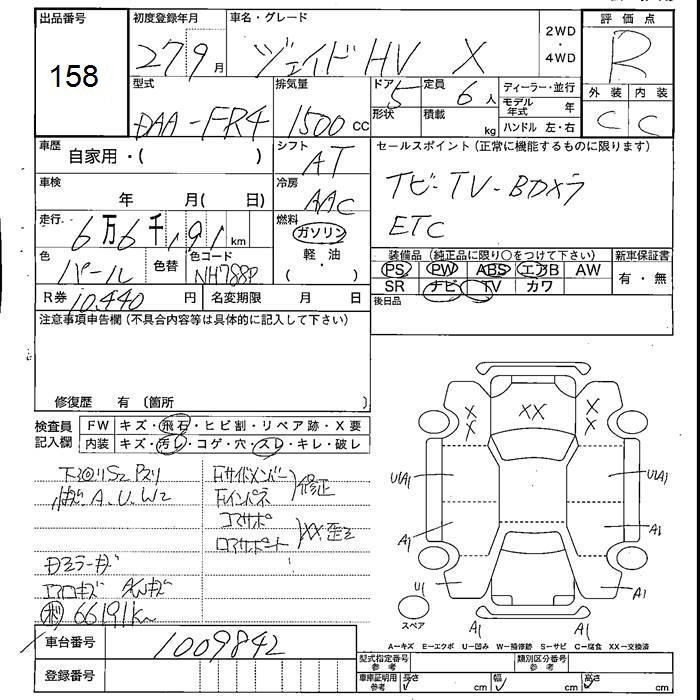 出品番号
158
初度登録年月
27 9 月
車名・グレード
ジェイド HV X
2WD
・
4WD
評価点
R
型式
DAA-FR4
排気量
1500 cc
ドア
5
形状
定員
6 人
積載
kg
ディーラー・並行
モデル年式 年
ハンドル 左・右
外装 内装
C C
車歴
自家用・( )
シフト
AT
セールスポイント (正常に機能するものに限ります)
ナビ・TV・BDカメラ
ETC
車検
年 月( 日)
冷房
AAC
走行
6万6千191 km
燃料
ガソリン
軽・油
色
パール
色替
色コード
NH788P
R券 10,440 円
名変期限 月 日
装備品 (純正品に限り○をつけて下さい)
新車保証書
PS PW ABS エアB AW
有・無
SR ナビ TV カワ
後日品
注意事項申告欄 (不具合内容等は具体的に記入して下さい)
修復歴 有 〔箇所 〕
検査員
記入欄
FW キズ・飛石・ヒビ割・リペア跡・X要
内装 キズ・汚レ・コゲ・穴・スレ・キレ・破レ
キズ.A.U.W2
66191km
修正
XX.歪ミ
XX
X
X
X
X
U(A)
U(A)
A1
A1
U1
A1
A1
A1
スペア
A−キズ E−エクボ U−凹ミ W−補修跡 S−サビ C−腐食 XX−交換済
車台番号
1009842
登録番号
型式指定番号
参考
類別区分番号
参考
車庫証明用
参考
長さ cm
幅 cm
高さ cm